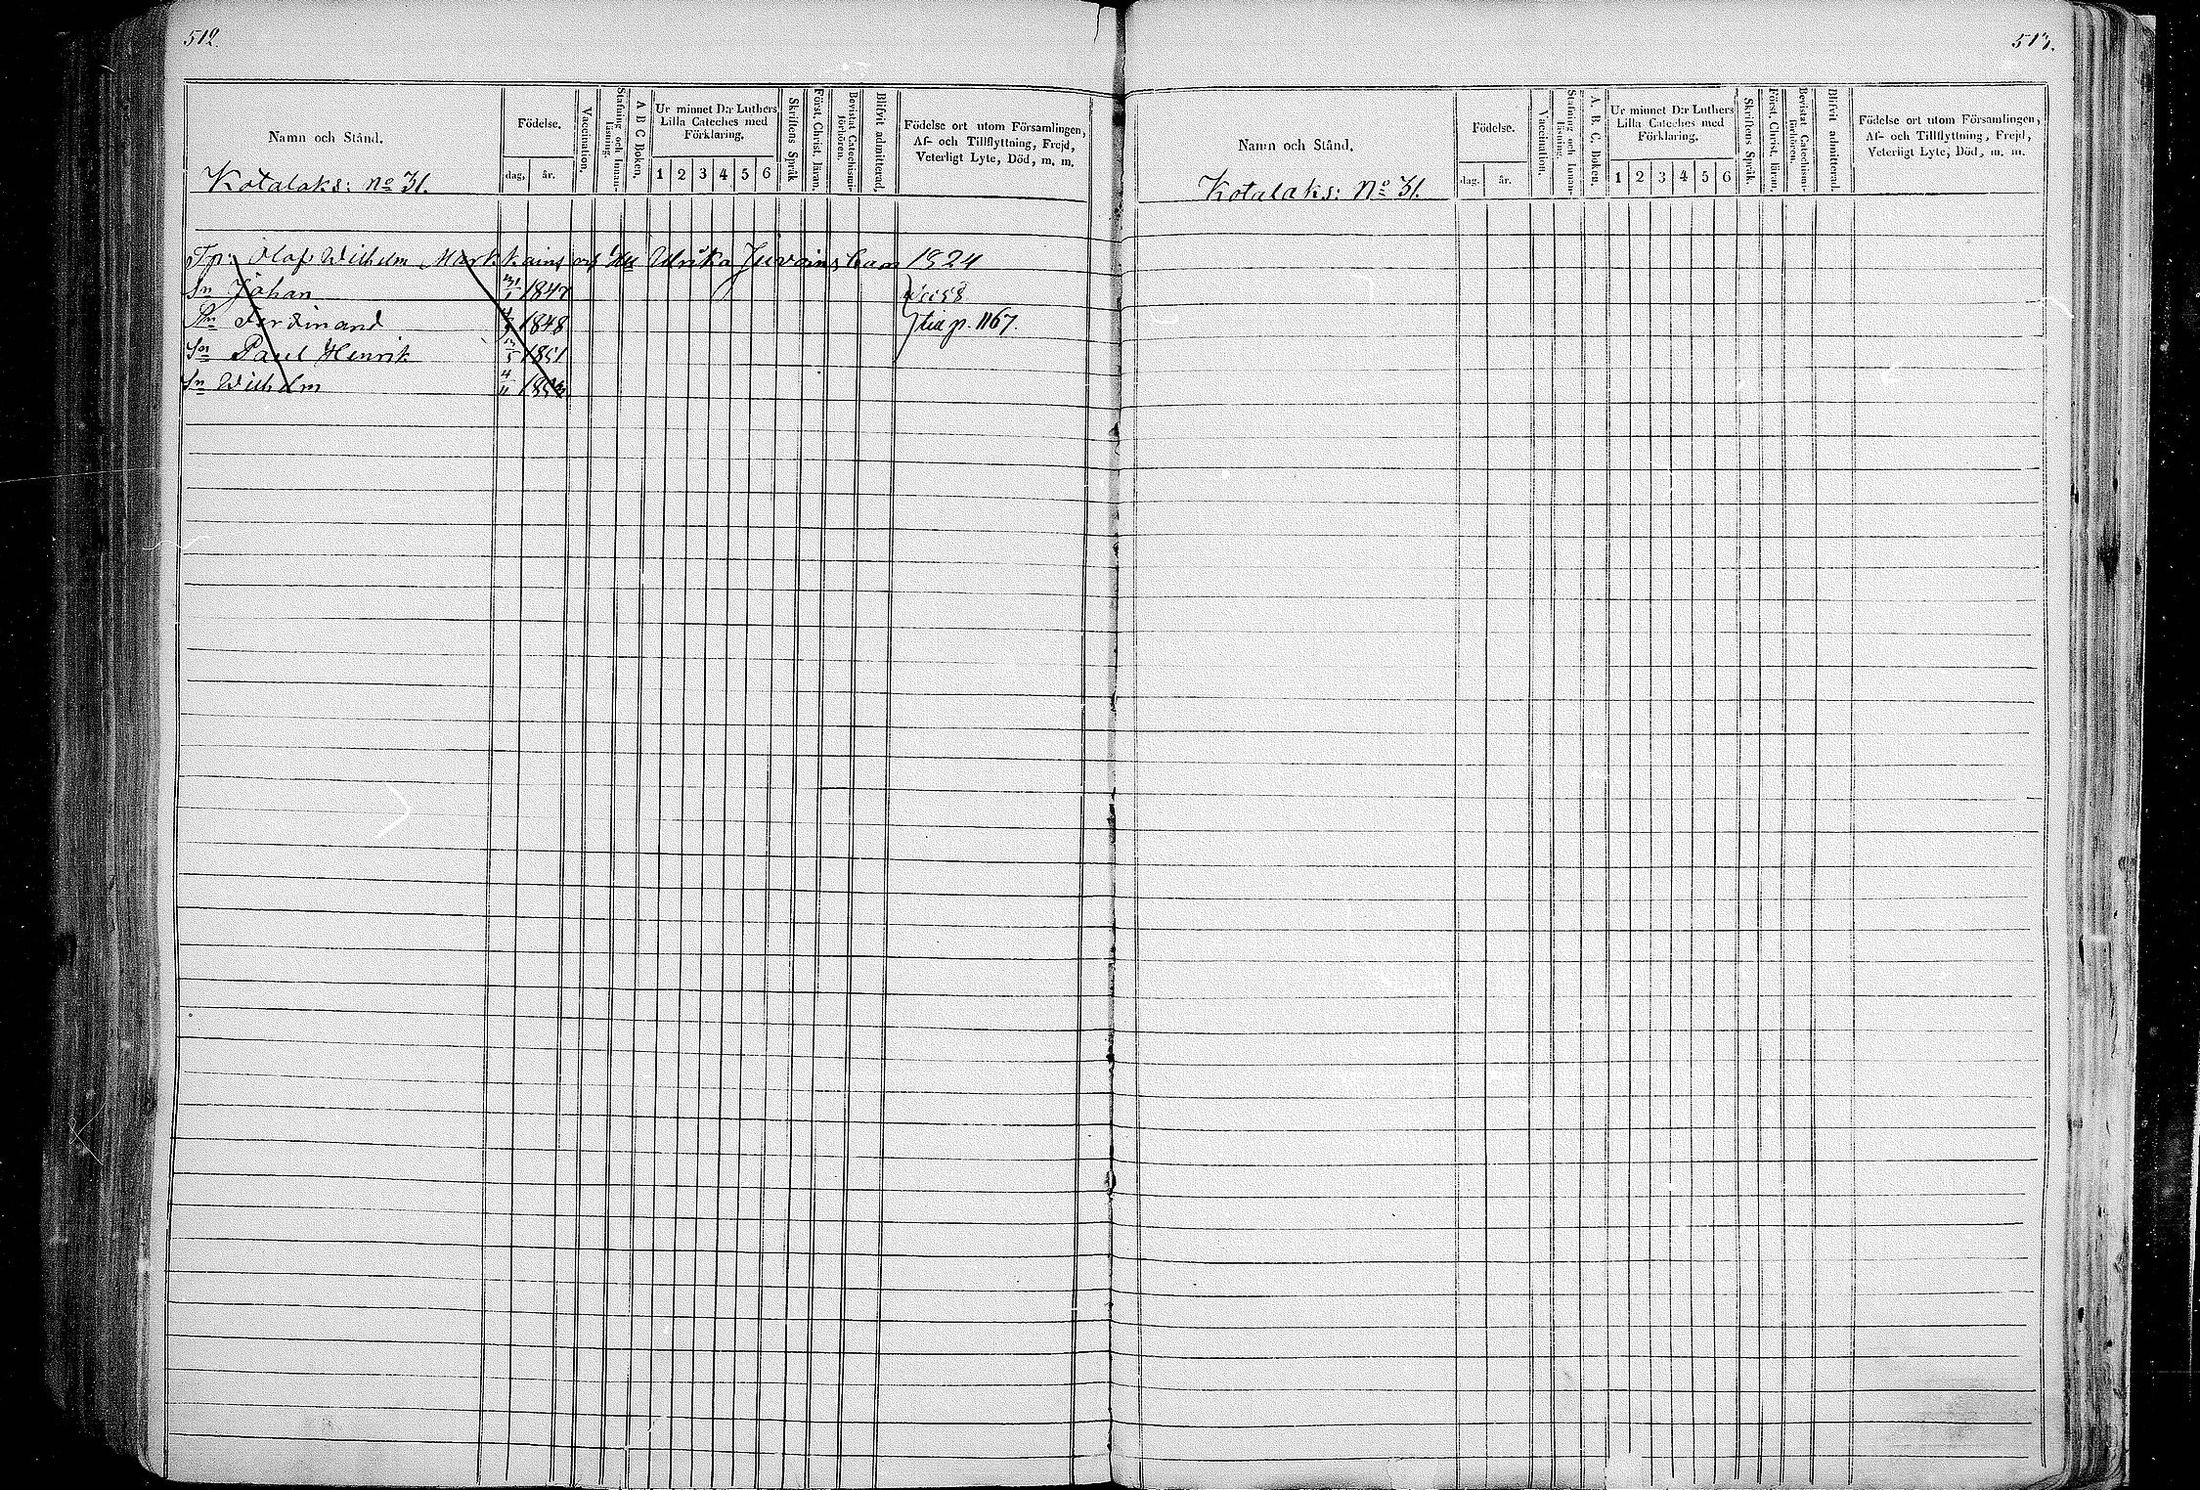 512.
Namn och Stånd.
Födelse.
dag, år.
Vaccination.
Stafning och Innanläsning.
A B C Boken.
Ur minnet D:r Luthers Lilla Cateches med Förklaring.
1 2 3 4 5 6
Skriftens Språk
Först. Christ. läran.
Bevistat Catechismi-förhören.
Blifvit admitterad.
Födelse ort utom Församlingen,
Af- och Tillflyttning, Frejd,
Veterligt Lyte, Död, m. m.
Kotalaks: No 31.
Olof Wilhelm Ulrika 1824
Sn Johan 1847
Sn Ferdinand 1848
Sn Paul Henrik 1851
tid p. 1167.
Sn Wilhelm 4/11
513.
Namn och Stånd.
Födelse.
dag. år.
Vaccination.
Stafning och Innanläsning.
A. B. C. Boken.
Ur minnet D:r Luthers
Lilla Cateches med
Förklaring.
1 2 3 4 5 6
Skriftens Språk.
Först. Christ. läran.
Bevistat Catechismi-förhören.
Blifvit admitterad.
Födelse ort utom Församlingen,
Af- och Tillflyttning, Frejd,
Veterligt Lyte, Död, m. m.
Kotalaks: No 31.